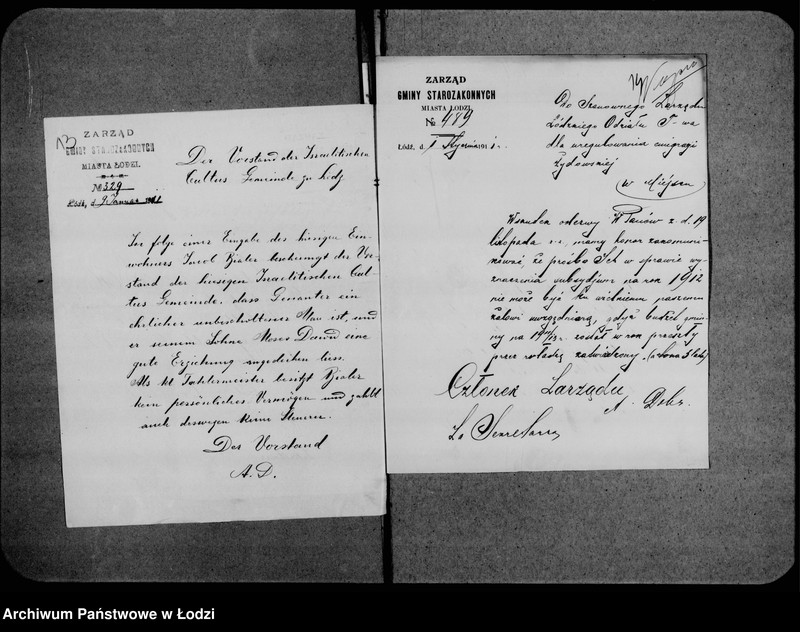 13
ZARZĄD
GMINY STAROZAKONNYCH
MIASTA ŁODZI.
№ 329
Łódź, d. 9 Januar
Der Vorstand der Israelitischen
Cultus Gemeinde zu Lodz
In folge einer Eingabe des hiesigen Ein-
wohners Jacob bescheinigt der Vor-
stand der hiesigen Israelitischen Cul-
tus Gemeinde, dass Genannter ein
ehrlicher unbescholtener Man ist, und
er seinem Sohne Moses Dawid eine
gute Erziehung angedeihen liess.
Als besitzt
kein persönliches Vermögen und zahlt
auch deswegen keine Steuern.
Der Vorstand
A. D.
ZARZĄD
GMINY STAROZAKONNYCH
MIASTA ŁODZI.
№ 489
Łódź, d. 1 Stycznia 191
Do Szanownego Zarządu
Łódzkiego Odziału T-wa
dla uregulowania emigracji
żydowskiej
w Miejscu
Wskutek odezwy W Panów z d. 19
listopada r. z., mamy honor zakomuni-
kować, że prośba Ich w sprawie wy-
znaczenia subsydjum na rok 1912
nie może być ku wielkiemu naszemu
żalowi uwzględnioną, gdyż budżet gmin-
ny na został w rok przeszły
przez władzę zatwierdzony.
Członek Zarządu
Za Sekretarza
Archiwum Państwowe w Łodzi